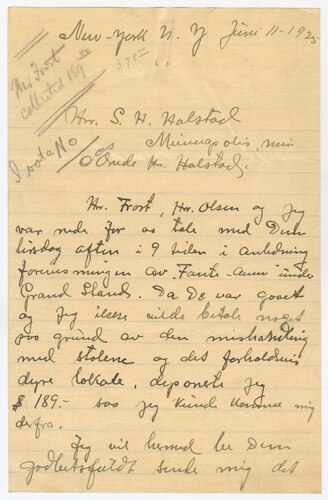 New-York N. Y Juni 11-1925
Mr Frost
collected My
378 00
I vote No
Hrr. S. H. Halstad
Minneapolis, min
Ærede Hr. Halstad.
Hr. Frost, Hr. Olsen og jeg
var nede for at tale med Dem
tirsdag aften i 9 tiden i anledning
forevisningen av "Fante-Anne" under
Grand Stands. Da De var gaaet
og jeg ikke vilde betale noget
paa grund av den mishandling
med stolene og det forholdsvis
dyre lokale, deponerte jeg
$ 189.- saa jeg kunde komme mig
derfra.
Jeg vil hermed be Dem
godhetsfuldt sende mig det